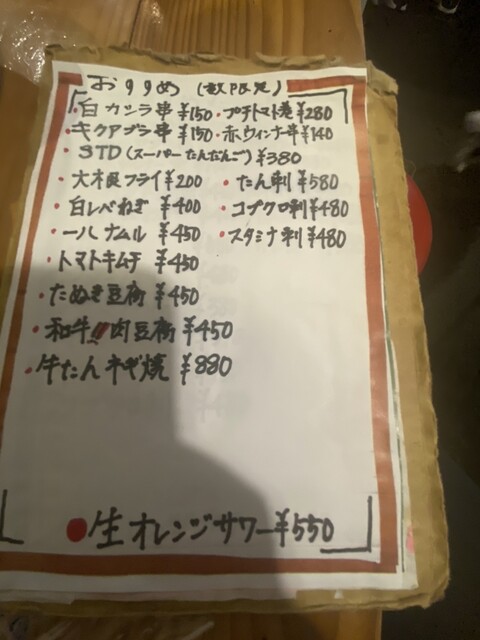 おすすめ (数限定)
・白カシラ串 ¥150 ・プチトマト巻 ¥280
・キクアブラ串 ¥150 ・赤ウィンナー串 ¥140
・STD (スーパーたんだんご) ¥380
・大木良フライ ¥200 ・たん刺 ¥580
・白レバねぎ ¥400 ・コブクロ刺 ¥480
・一ハナムル ¥450 ・スタミナ刺 ¥480
・トマトキムチ ¥450
・たぬき豆腐 ¥450
・和牛!!肉豆腐 ¥450
・牛たんネギ焼 ¥880
●生オレンジサワー ¥550